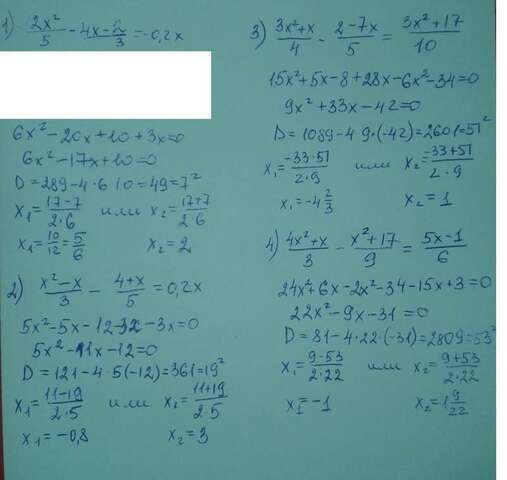 1) 2x²/5 - 4x-2/3 = -0,2x
6x² - 20x + 10 + 3x = 0
6x² - 17x + 10 = 0
D = 289 - 4·6·10 = 49 = 7²
x₁ = 17-7/2·6 или x₂ = 17+7/2·6
x₁ = 10/12 = 5/6 x₂ = 2
2) x²-x/3 - 4+x/5 = 0,2x
5x² - 5x - 12 - 3x - 3x = 0
5x² - 11x - 12 = 0
D = 121 - 4·5(-12) = 361 = 19²
x₁ = 11-19/2·5 или x₂ = 11+19/2·5
x₁ = -0,8 x₂ = 3
3) 3x²+x/4 - 2-7x/5 = 3x²+17/10
15x² + 5x - 8 + 28x - 6x² - 34 = 0
9x² + 33x - 42 = 0
D = 1089 - 4·9·(-42) = 2601 = 51²
x₁ = -33-51/2·9 или x₂ = -33+51/2·9
x₁ = -4 2/3 x₂ = 1
4) 4x²+x/3 - x²+17/9 = 5x-1/6
24x² + 6x - 2x² - 34 - 15x + 3 = 0
22x² - 9x - 31 = 0
D = 81 - 4·22·(-31) = 2809 = 53²
x₁ = 9-53/2·22 или x₂ = 9+53/2·22
x₁ = -1 x₂ = 1 9/22